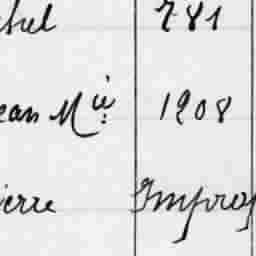 781
ean M^ie 1908
ierre Improp